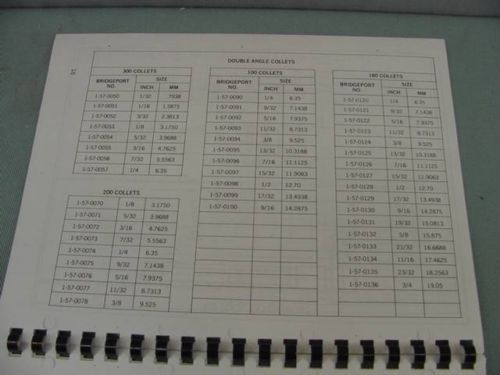 18
DOUBLE ANGLE COLLETS
300 COLLETS
BRIDGEPORT NO. SIZE
INCH MM
1-57-0050 1/32 .7938
1-57-0051 1/16 1.5875
1-57-0052 3/32 2.3813
1-57-0053 1/8 3.1750
1-57-0054 5/32 3.9688
1-57-0055 3/16 4.7625
1-57-0056 7/32 5.5563
1-57-0057 1/4 6.35
200 COLLETS
1-57-0070 1/8 3.1750
1-57-0071 5/32 3.9688
1-57-0072 3/16 4.7625
1-57-0073 7/32 5.5563
1-57-0074 1/4 6.35
1-57-0075 9/32 7.1438
1-57-0076 5/16 7.9375
1-57-0077 11/32 8.7313
1-57-0078 3/8 9.525
100 COLLETS
BRIDGEPORT NO. SIZE
INCH MM
1-57-0090 1/4 6.35
1-57-0091 9/32 7.1438
1-57-0092 5/16 7.9375
1-57-0093 11/32 8.7313
1-57-0094 3/8 9.525
1-57-0095 13/32 10.3188
1-57-0096 7/16 11.1125
1-57-0097 15/32 11.9063
1-57-0098 1/2 12.70
1-57-0099 17/32 13.4938
1-57-0100 9/16 14.2875
180 COLLETS
BRIDGEPORT NO. SIZE
INCH MM
1-57-0120 1/4 6.35
1-57-0121 9/32 7.1438
1-57-0122 5/16 7.9375
1-57-0123 11/32 8.7313
1-57-0124 3/8 9.525
1-57-0125 13/32 10.3188
1-57-0126 7/16 11.1125
1-57-0127 15/32 11.9063
1-57-0128 1/2 12.70
1-57-0129 17/32 13.4938
1-57-0130 9/16 14.2875
1-57-0131 19/32 15.0813
1-57-0132 5/8 15.875
1-57-0133 21/32 16.6688
1-57-0134 11/16 17.4625
1-57-0135 23/32 18.2563
1-57-0136 3/4 19.05